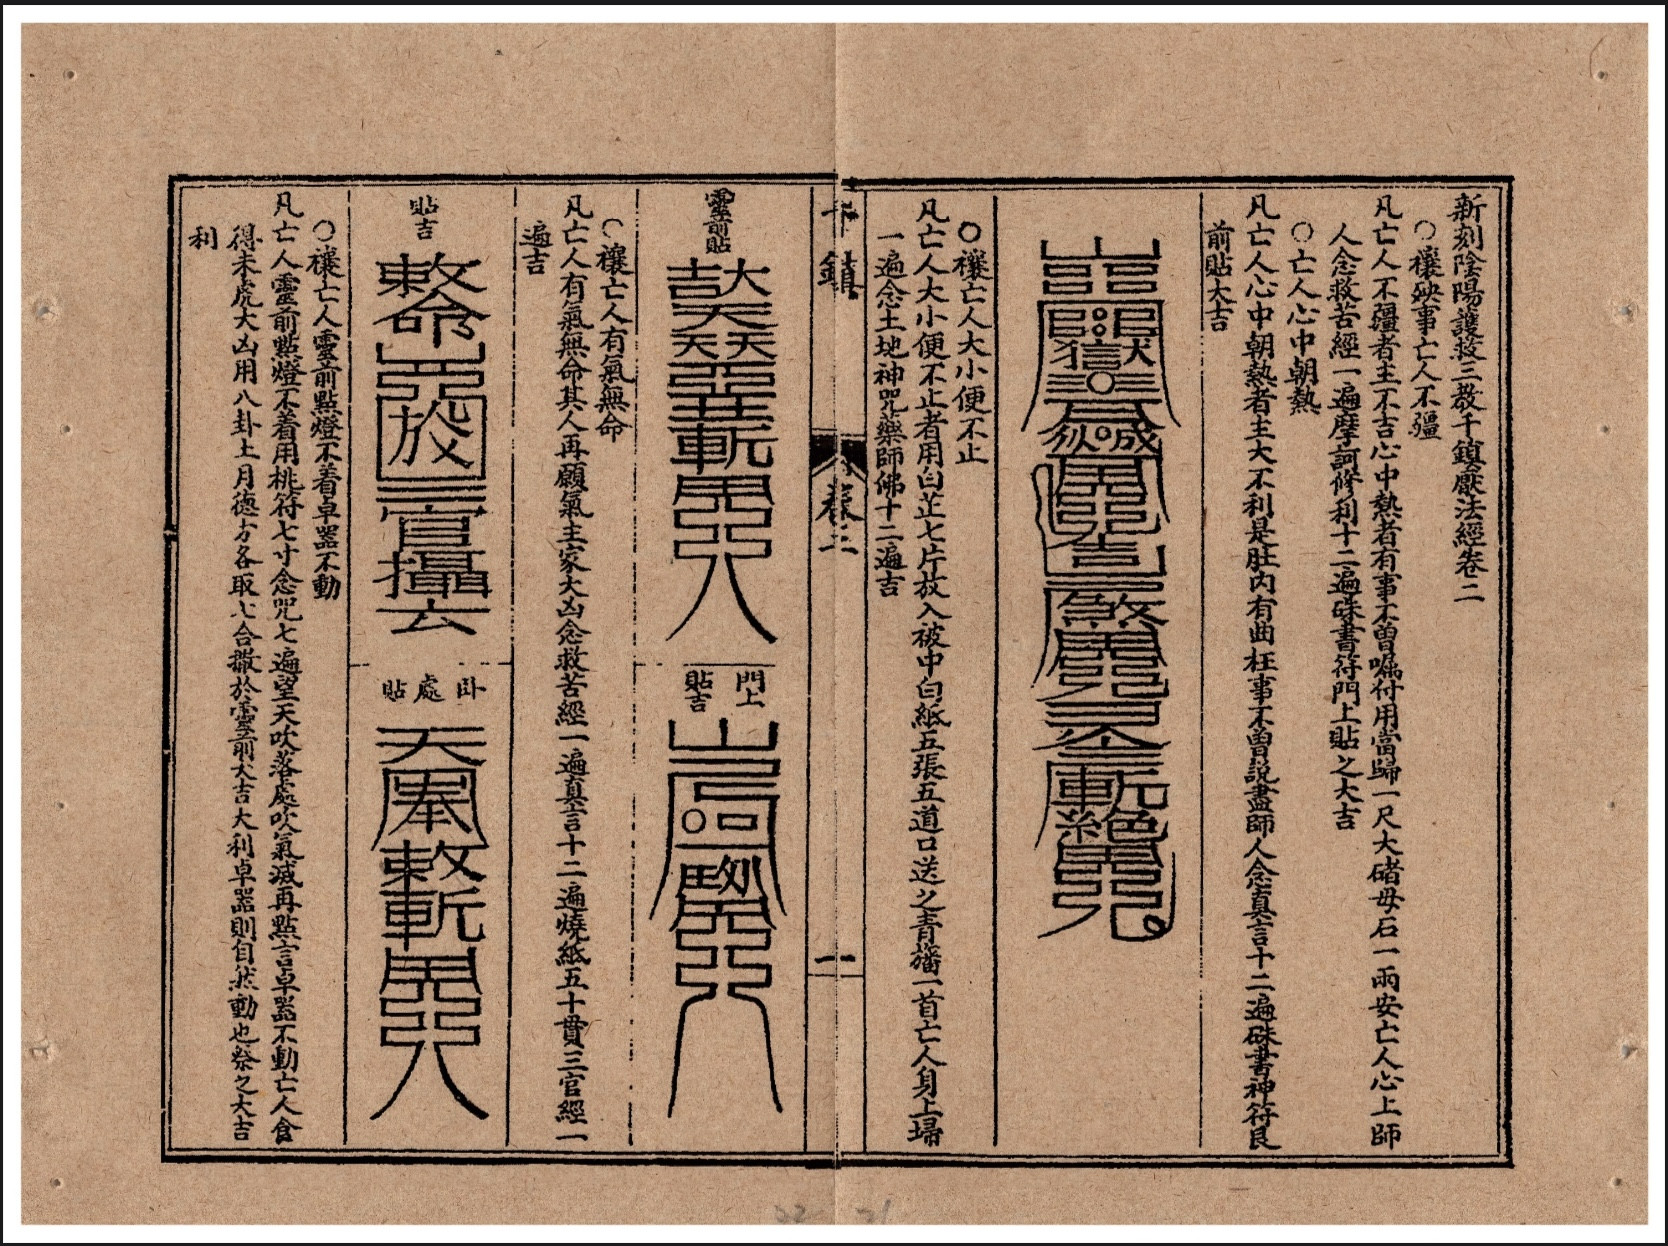 新刻陰陽護救三教千鎮厭法經卷二
○禳殃事亡人不殭
凡亡人不殭者主不吉心中熱者有事不曾囑付用當歸一尺大磠母石一兩安亡人心上師
人念救苦經一遍摩訶修利十二遍硃書符門上貼之大吉
○亡人心中朝熱
凡亡人心中朝熱者主大不利是肚内有曲枉事不曾説盡師人念真言十二遍硃書神符艮
前貼大吉
○禳亡人大小便不止
凡亡人大小便不止者用白芷七片放入被中白紙五張五道口送之青旛一首亡人身上埽
一遍念土地神咒藥師佛十二遍吉
千鎮
卷二
一
靈前貼
門上
貼吉
○禳亡人有氣無命
凡亡人有氣無命其人再願氣主家大凶念救苦經一遍真言十二遍燒紙五十貫三官經一
遍吉
貼吉
敕命
放
三官攝去
卧處貼
天
奉敕斬
○禳亡人靈前點燈不着卓器不動
凡亡人靈前點燈不着用桃符七寸念咒七遍望天吹落處吹氣滅再點言卓器不動亡人食
得未虎大凶用八卦土月德方各取七合撒於靈前大吉大利卓器則自然動也祭之大吉
利